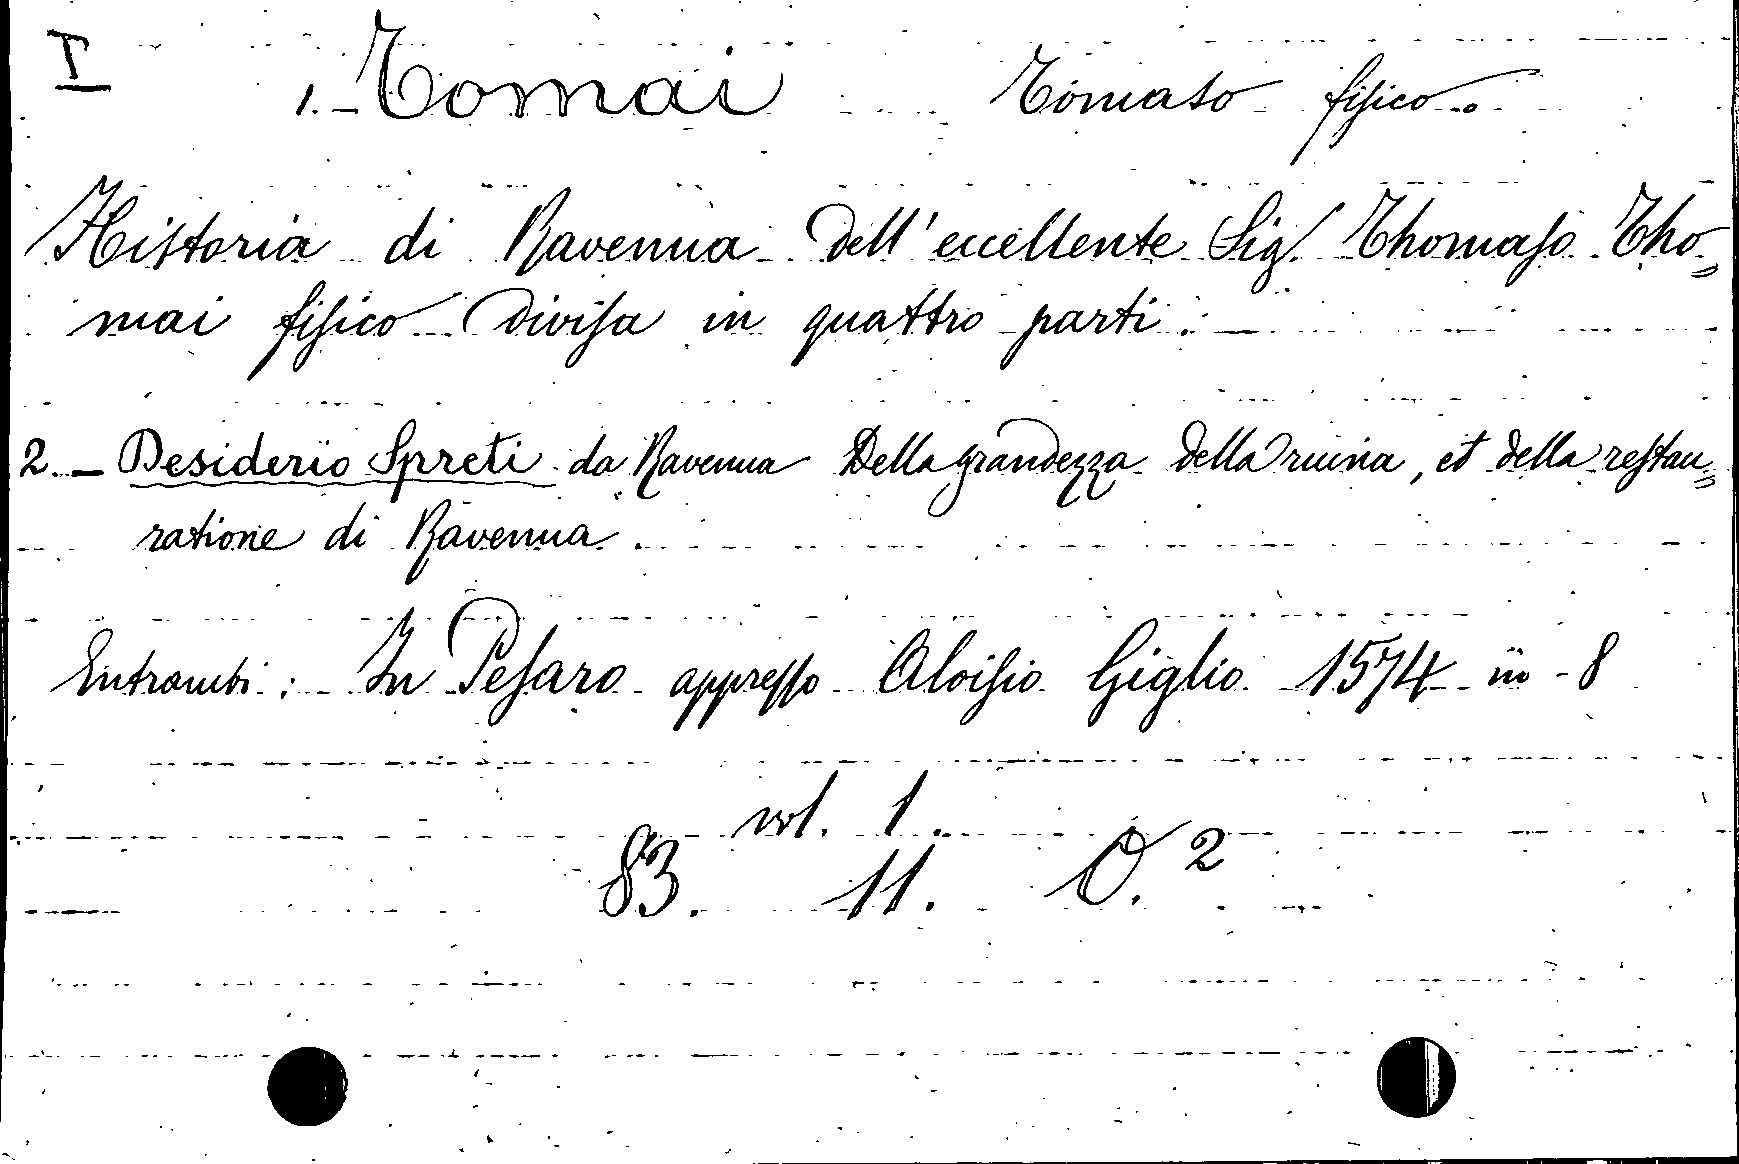 I
1. – Tomai Tomaso fisico.
Historia di Ravenna dell'eccellente Sig. Thomaso Tho„
mai fisico divisa in quattro parti. –
2. – Desiderio Spreti da Ravenna Della grandezza della ruina, et della restau„
ratione di Ravenna.
Entrambi: In Pesaro appresso Aloisio Giglio 1574 in 8
vol. 1.
83. 11. O.²